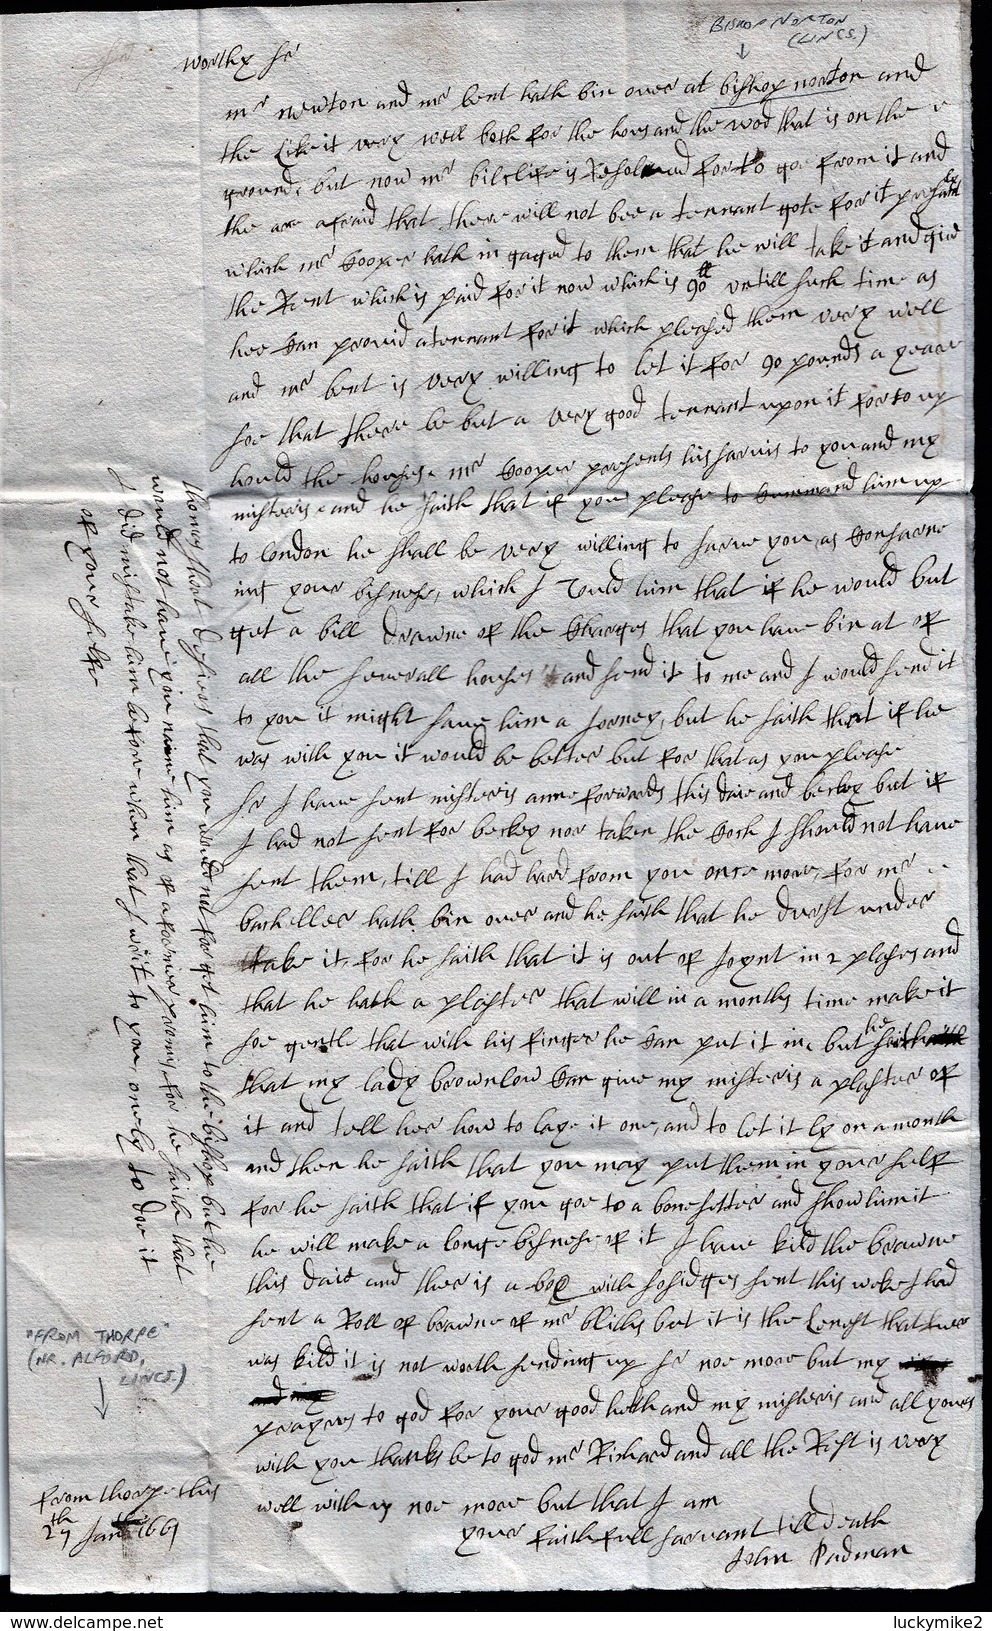 BISHOP NORTON
(LINCS.)
worthy sr
mr newton and mr bent hath bin over at bishop norton and
the like it very well both for the hous and the wod that is on the
ground, but now mr bilclife is Resolued for to goe from it and
the are afraid that there will not bee a tennant gote for it presant
which mr Cooper hath in gaged to them that he will take it and giv
the Rent which is paid for it now which is 90ll untill such time as
hee Can provid a tennant for it which pleased them very well
and mr bent is very willing to let it for 90 pounds a yeare
soe that there be but a very good tennant upon it for to up
hould the houses. mr Cooper presents his sarvis to you and my
misteris and he saith that if you please to Command him up
to london he shall be very willing to sarve you, as Consarne
ing your bisnes, which I tould him that if he would but
get a bill drawne of the Charges that you have bin at of
all the severall houses and send it to me and I would send it
to you it might save him a Jorney, but he saith that if he
was with you it would be better but for that as you please
sr I have sent misteris anne forwards this daie and beckey but if
I had not sent for beckey nor taken the Coch I should not have
sent them, till I had hard from you once more, for mr
bacheller hath bin over and he saith that he durst under
take it, for he saith that it is out of Joynt in 2 plases and
that he hath a plaster that will in a months time make it
soe gentle that with his finger he Can put it in, but he saith
that my lady brownlow Can give my misteris a plaster of
it and tell her how to laye it one, and to let it ly on a month
and then he saith that you may put them in your self
for he saith that if you goe to a bone setter and show him it
he will make a longe bisnese of it I have kild the brawne
this daie and ther is a box with sosidges sent this weke I had
sent a Roll of brawne of mr but it is the Lenest that ever
was kild it is not worth sending up sr noe more but my
prayers to god for your good helth and my misteris and all yours
with you thanks be to god mr Richard and all the Rest is very
well with us noe more but that I am
your faithfull sarvant till death
John Padman
thomas desiers that you would not forget him to the bishop but he
would not have you name him as of a former promis for he saith that
I did mistake him before when that I writ to you, onely to doe it
of your selfe
"FROM THORPE"
(NR. ALFORD,
LINCS.)
from thorpe this
27th Jan 1669
www.delcampe.net
luckymike2